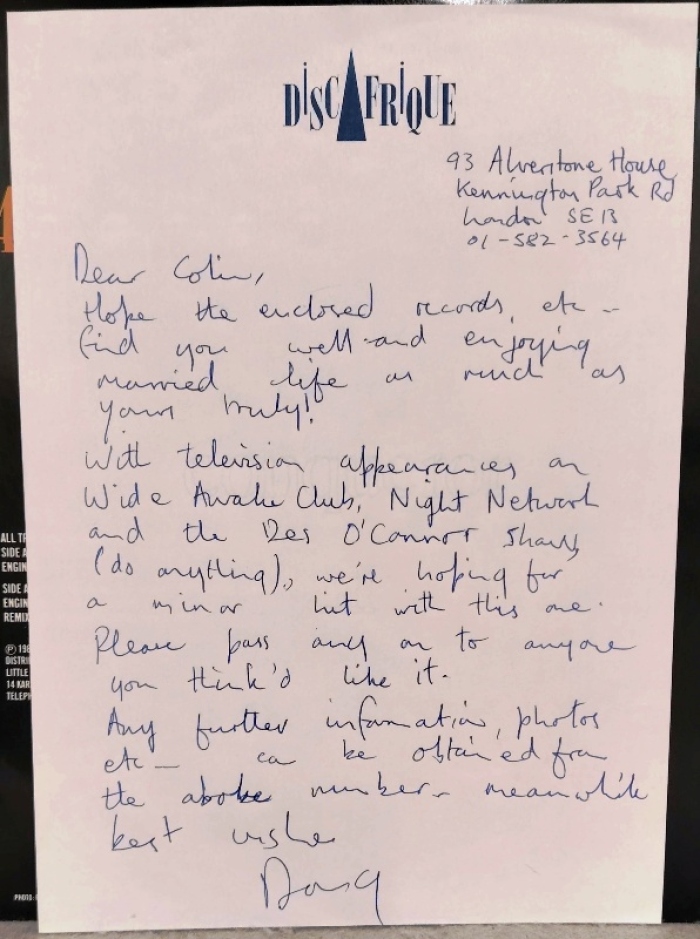 DISCAFRIQUE
93 Alverstone House
Kennington Park Rd
London SE 13
01-582-3564
Dear Colin,
Hope the enclosed records, etc -
find you well and enjoying
married life as much as
yours truly!
With television appearances on
Wide Awake Club, Night Network
and the Des O'Connor Show,
(do anything), we're hoping for
a minor hit with this one.
Please pass any on to anyone
you think'd like it.
Any further information, photos
etc - can be obtained from
the above number - meanwhile
best wishes
Doug
ALL TR
SIDE A
ENGIN
SIDE A
ENGIN
REMIX
DISTRI
LITTLE
14 KAR
TELEPH
PHOTO: